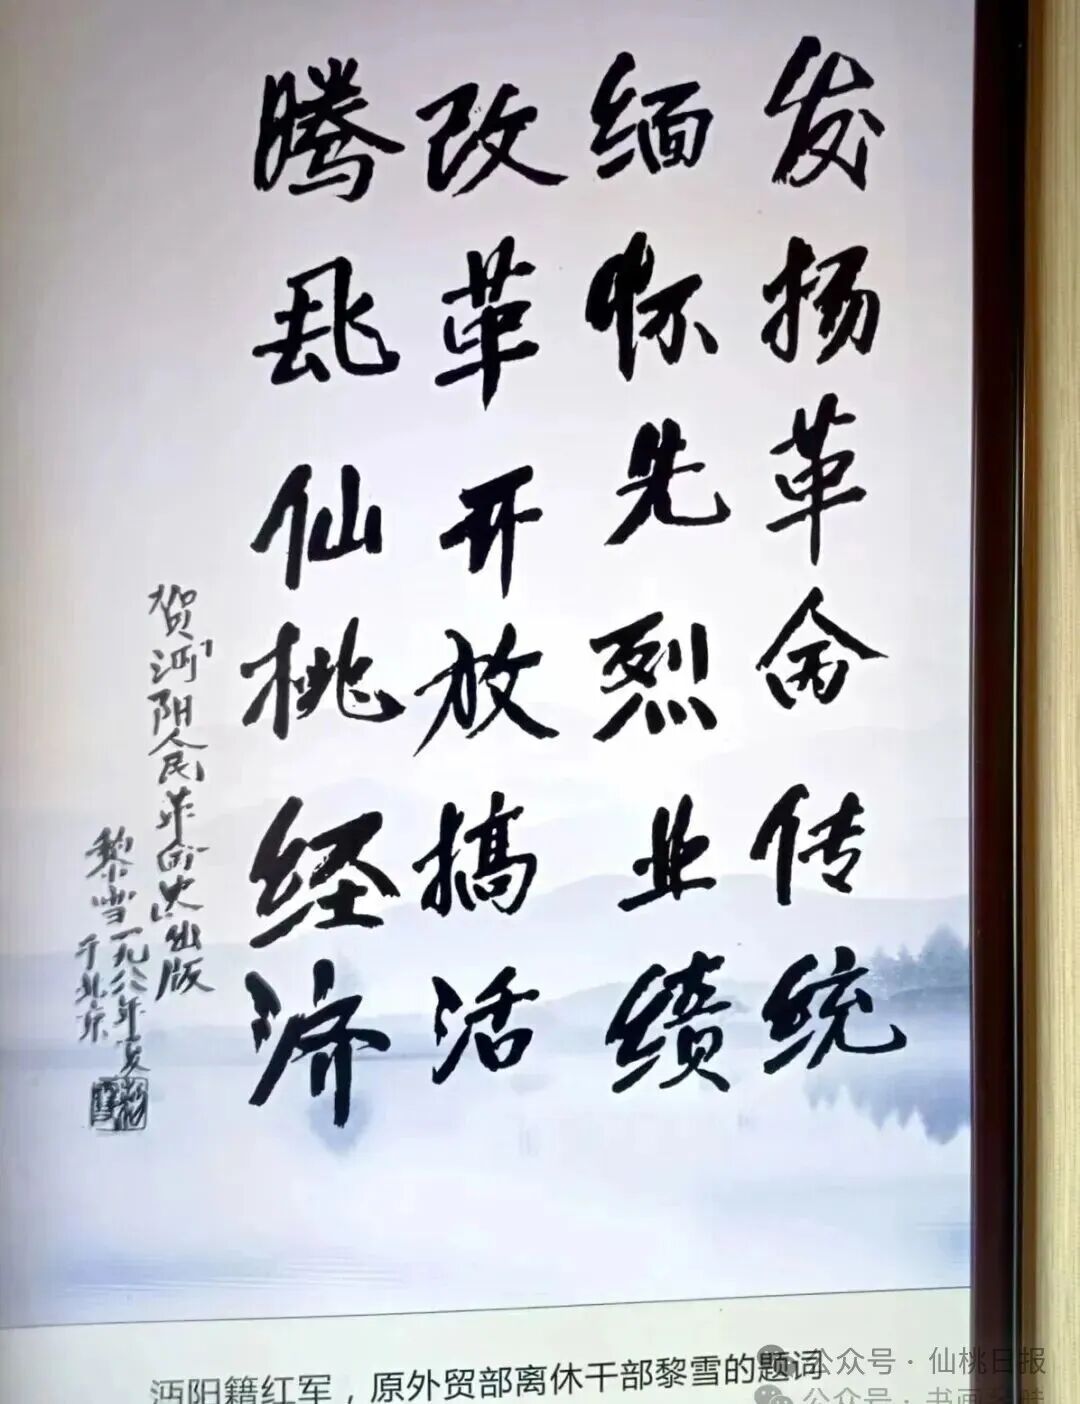 发扬革命传统
缅怀先烈业绩
改革开放搞活
腾飞仙桃经济
贺沔阳人民革命史出版
黎雪一九八八年夏
于北京
沔阳籍红军，原外贸部离休干部黎雪的题词
公众号·仙桃日报